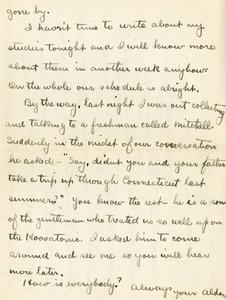 gone by.
I hasn't time to write about my
studies tonight and I will know more
about them in another week anyhow.
On the whole our schedule is alright.
By the way, last night I was out collecting
and talking to a freshman called Mitchell.
Suddenly in the midst of our conversation
he asked - "Say, didnt you and your father
take a trip up through Connecticut last
summer?" You know the rest - he is a son
of the gentleman who treated us so well upon
the Hoosatonic. I asked him to come
around and see me so you will hear
more later.
How is everybody? Always your Alden